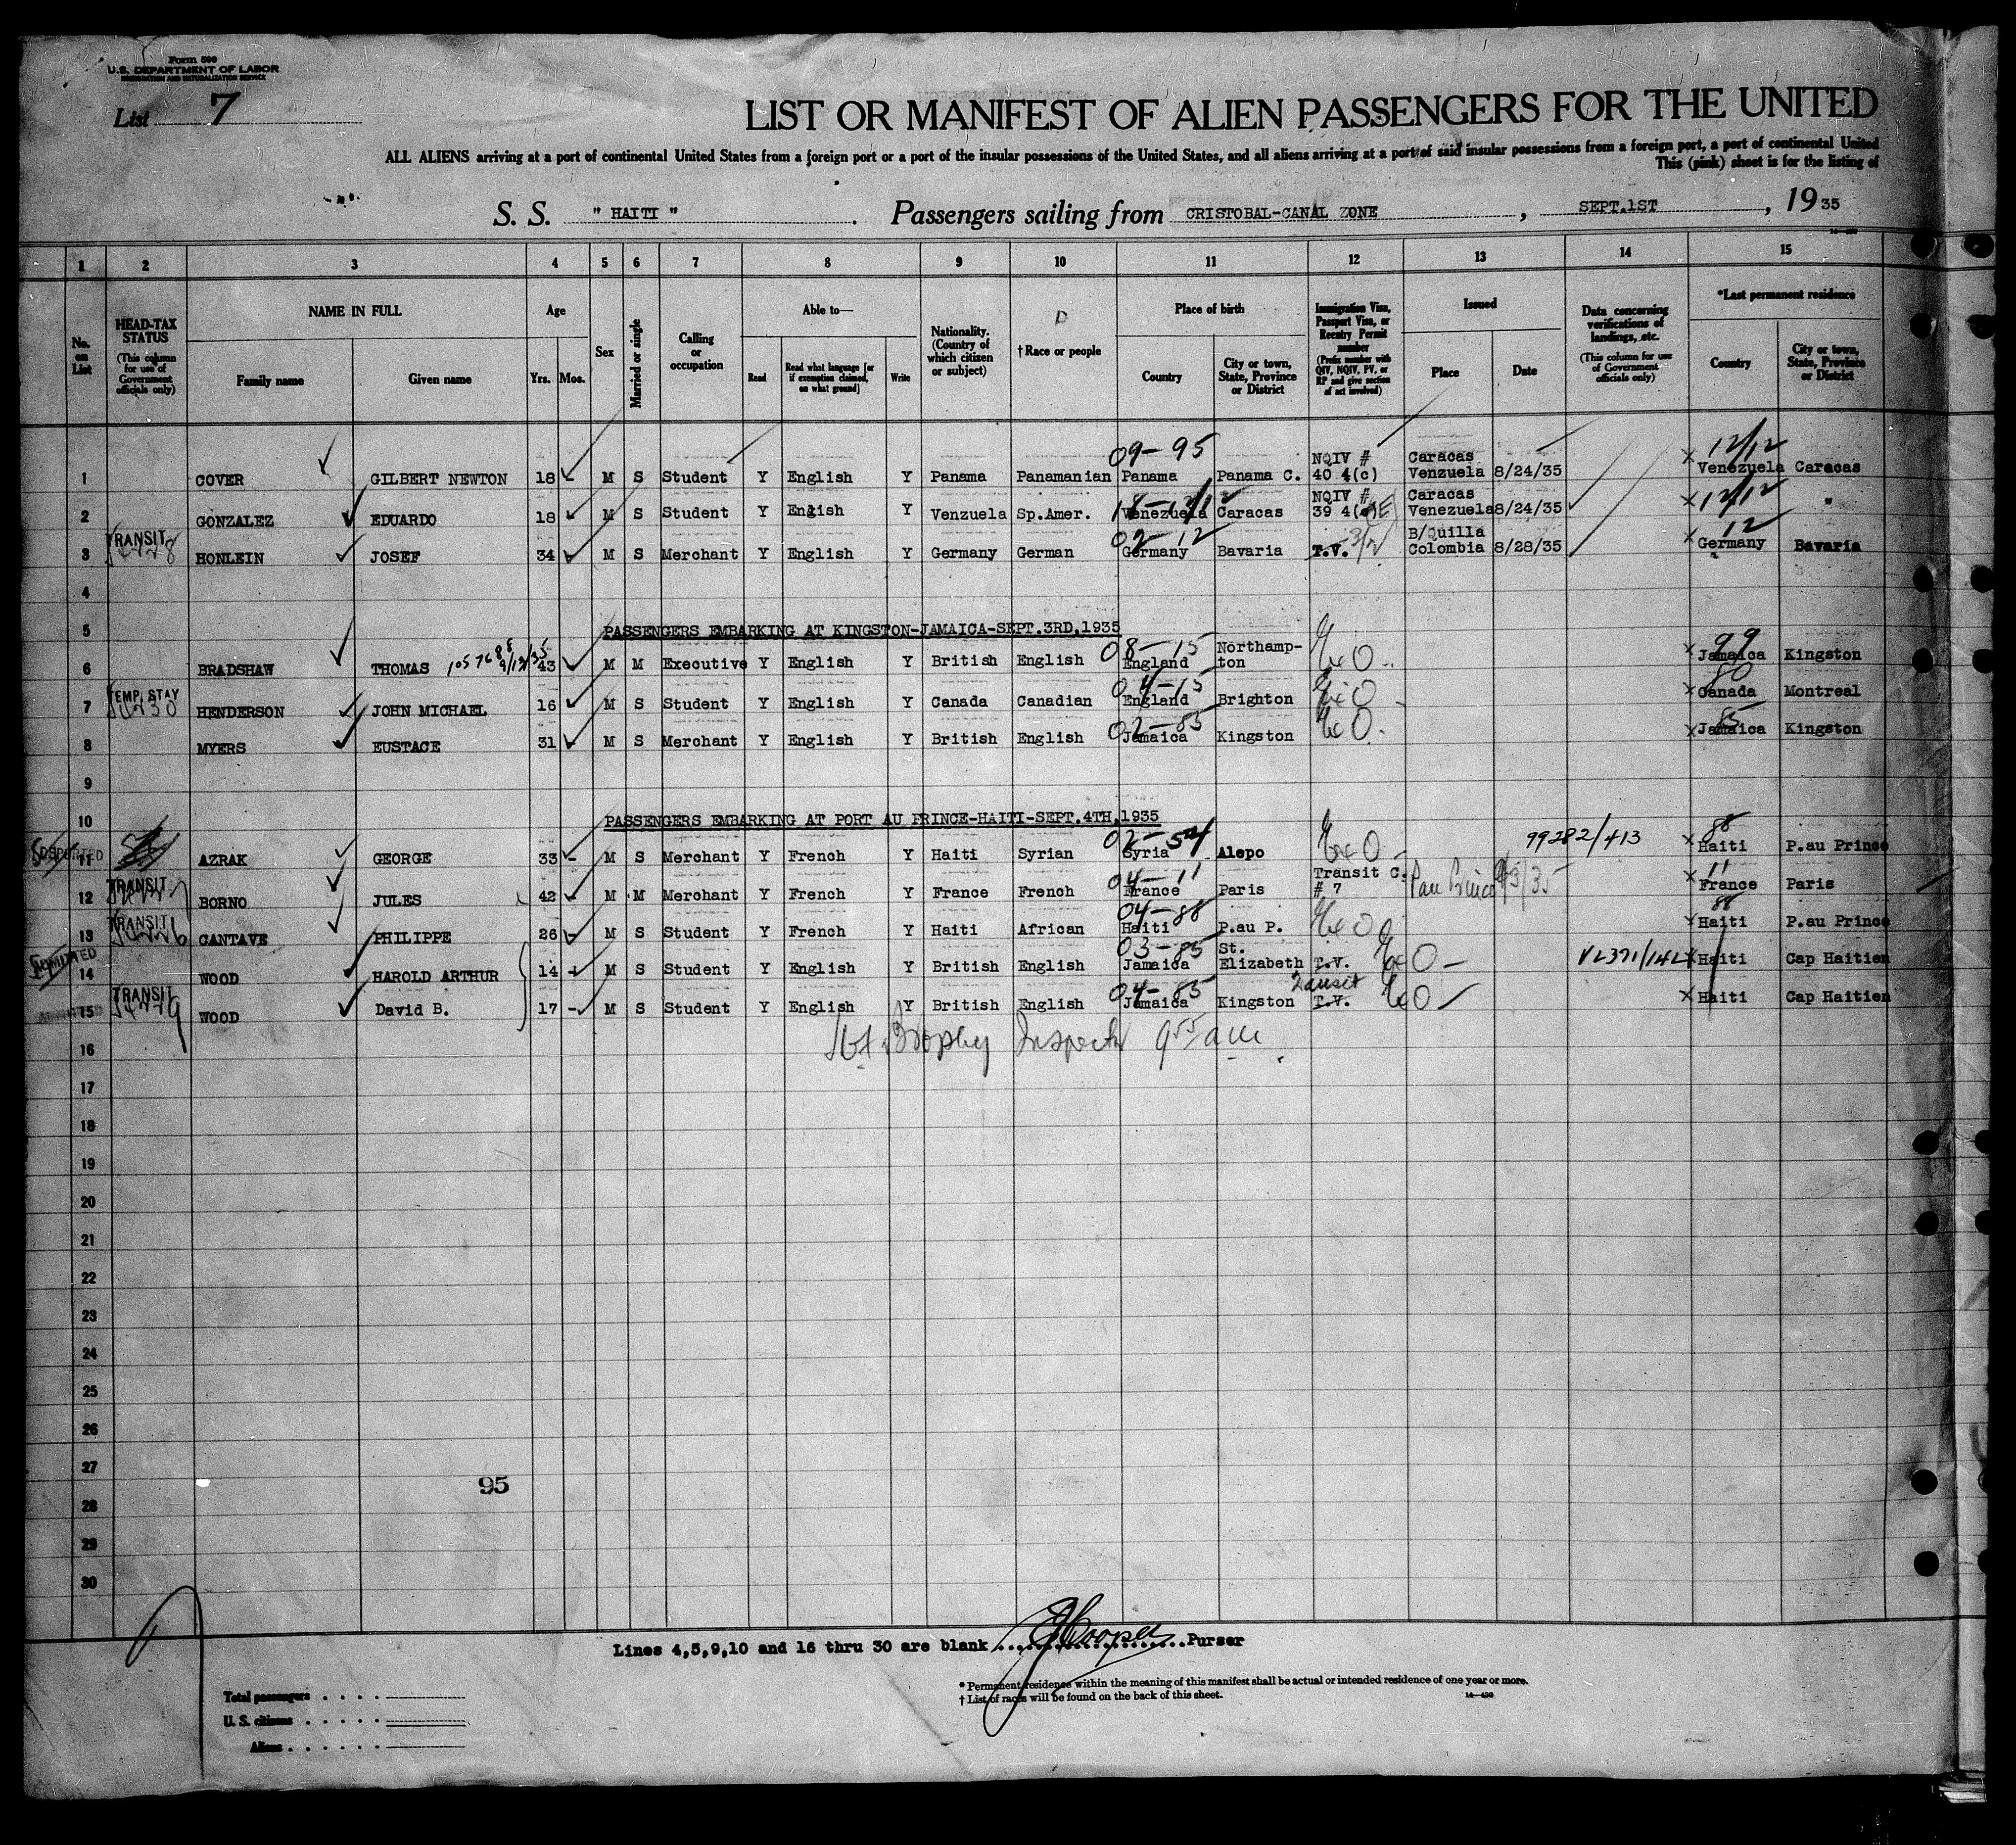 Form 500
U.S. DEPARTMENT OF LABOR
IMMIGRATION AND NATURALIZATION SERVICE
List 7
LIST OR MANIFEST OF ALIEN PASSENGERS FOR THE UNITED
ALL ALIENS arriving at a port of continental United States from a foreign port or a port of the insular possessions of the United States, and all aliens arriving at a port of said insular possessions from a foreign port, a port of continental United
This (pink) sheet is for the listing of
S. S. " HAITI ". Passengers sailing from CRISTOBAL-CANAL ZONE, SEPT.1ST, 1935
1 2 3 4 5 6 7 8 9 10 11 12 13 14 15
No. on List
HEAD-TAX STATUS (This column for use of Government officials only)
NAME IN FULL Family name Given name
Age Yrs. Mos.
Sex
Married or single
Calling or occupation
Able to— Read Read what language [or if exemption claimed, on what ground] Write
Nationality. (Country of which citizen or subject)
†Race or people
Place of birth Country City or town, State, Province or District
Immigration Visa, Passport Visa, or Reentry Permit number (Prefix number with QIV, NQIV, PV, or RP and give section of act involved)
Issued Place Date
Data concerning verifications of landings, etc. (This column for use of Government officials only)
*Last permanent residence Country City or town, State, Province or District
09-95 12/12
1 COVER GILBERT NEWTON 18 M S Student Y English Y Panama Panamanian Panama Panama C. NQIV # 40 4(c) Caracas Venzuela 8/24/35 Venezuela Caracas
12/12
2 GONZALEZ EDUARDO 18 M S Student Y English Y Venzuela Sp.Amer. Venezuela Caracas NQIV # 39 4( )E Caracas Venezuela 8/24/35 "
TRANSIT 02-12 12
3 HONLEIN JOSEF 34 M S Merchant Y English Y Germany German Germany Bavaria T.V. 3/2 B/Quilla Colombia 8/28/35 Germany Bavaria
4
5 PASSENGERS EMBARKING AT KINGSTON-JAMAICA-SEPT.3RD,1935
08-15 99
6 BRADSHAW THOMAS 105768 43 M M Executive Y English Y British English England Northamp-ton ExO Jamaica Kingston
TEMP. STAY 04-15 80
7 HENDERSON JOHN MICHAEL 16 M S Student Y English Y Canada Canadian England Brighton ExO Canada Montreal
02-85 85
8 MYERS EUSTACE 31 M S Merchant Y English Y British English Jamaica Kingston ExO Jamaica Kingston
9
10 PASSENGERS EMBARKING AT PORT AU PRINCE-HAITI-SEPT.4TH,1935
02-54 99282/413 88
DEPORTED 11 AZRAK GEORGE 33 M S Merchant Y French Y Haiti Syrian Syria Alepo ExO Haiti P.au Prince
TRANSIT 04-11 11
12 BORNO JULES 42 M M Merchant Y French Y France French France Paris Transit C. # 7 Pau Prince 9/3/35 France Paris
TRANSIT 04-88 88
13 CANTAVE PHILIPPE 26 M S Student Y French Y Haiti African Haiti P.au P. ExO Haiti P.au Prince
ADMITTED 03-85
14 WOOD HAROLD ARTHUR 14 M S Student Y English Y British English Jamaica St. Elizabeth T.V. ExO Haiti Cap Haitien
TRANSIT 04-85 Transit
15 WOOD David B. 17 M S Student Y English Y British English Jamaica Kingston T.V. ExO Haiti Cap Haitien
16 Brophy Inspector 9 55 am
17
18
19
20
21
22
23
24
25
26
27
95
28
29
30
Lines 4,5,9,10 and 16 thru 30 are blank Cooper Purser
* Permanent residence within the meaning of this manifest shall be actual or intended residence of one year or more.
† List of races will be found on the back of this sheet.
Total passengers
U. S. citizens
Aliens